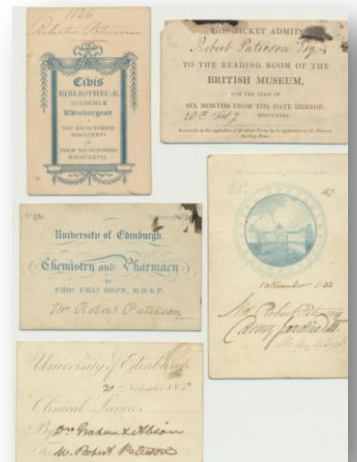 Robertus Paterson
Civis
BIBLIOTHECÆ
ACADEMIÆ
Edinburgenæ
DIE 1MO OCTOBRIS
MDCCCXXVI.
THIS TICKET ADMITS
Robert Paterson Esq
TO THE READING ROOM OF THE
BRITISH MUSEUM,
FOR THE TERM OF
SIX MONTHS FROM THE DATE HEREOF.
University of Edinburgh.
Chemistry and Pharmacy
BY
THOS CHAS HOPE, M.D & P.
Mr Robert Paterson
167
Mr Robert Paterson
University of Edinburgh
Clinical Lectures
By Drs Graham & Alison
To Mr Robert Paterson